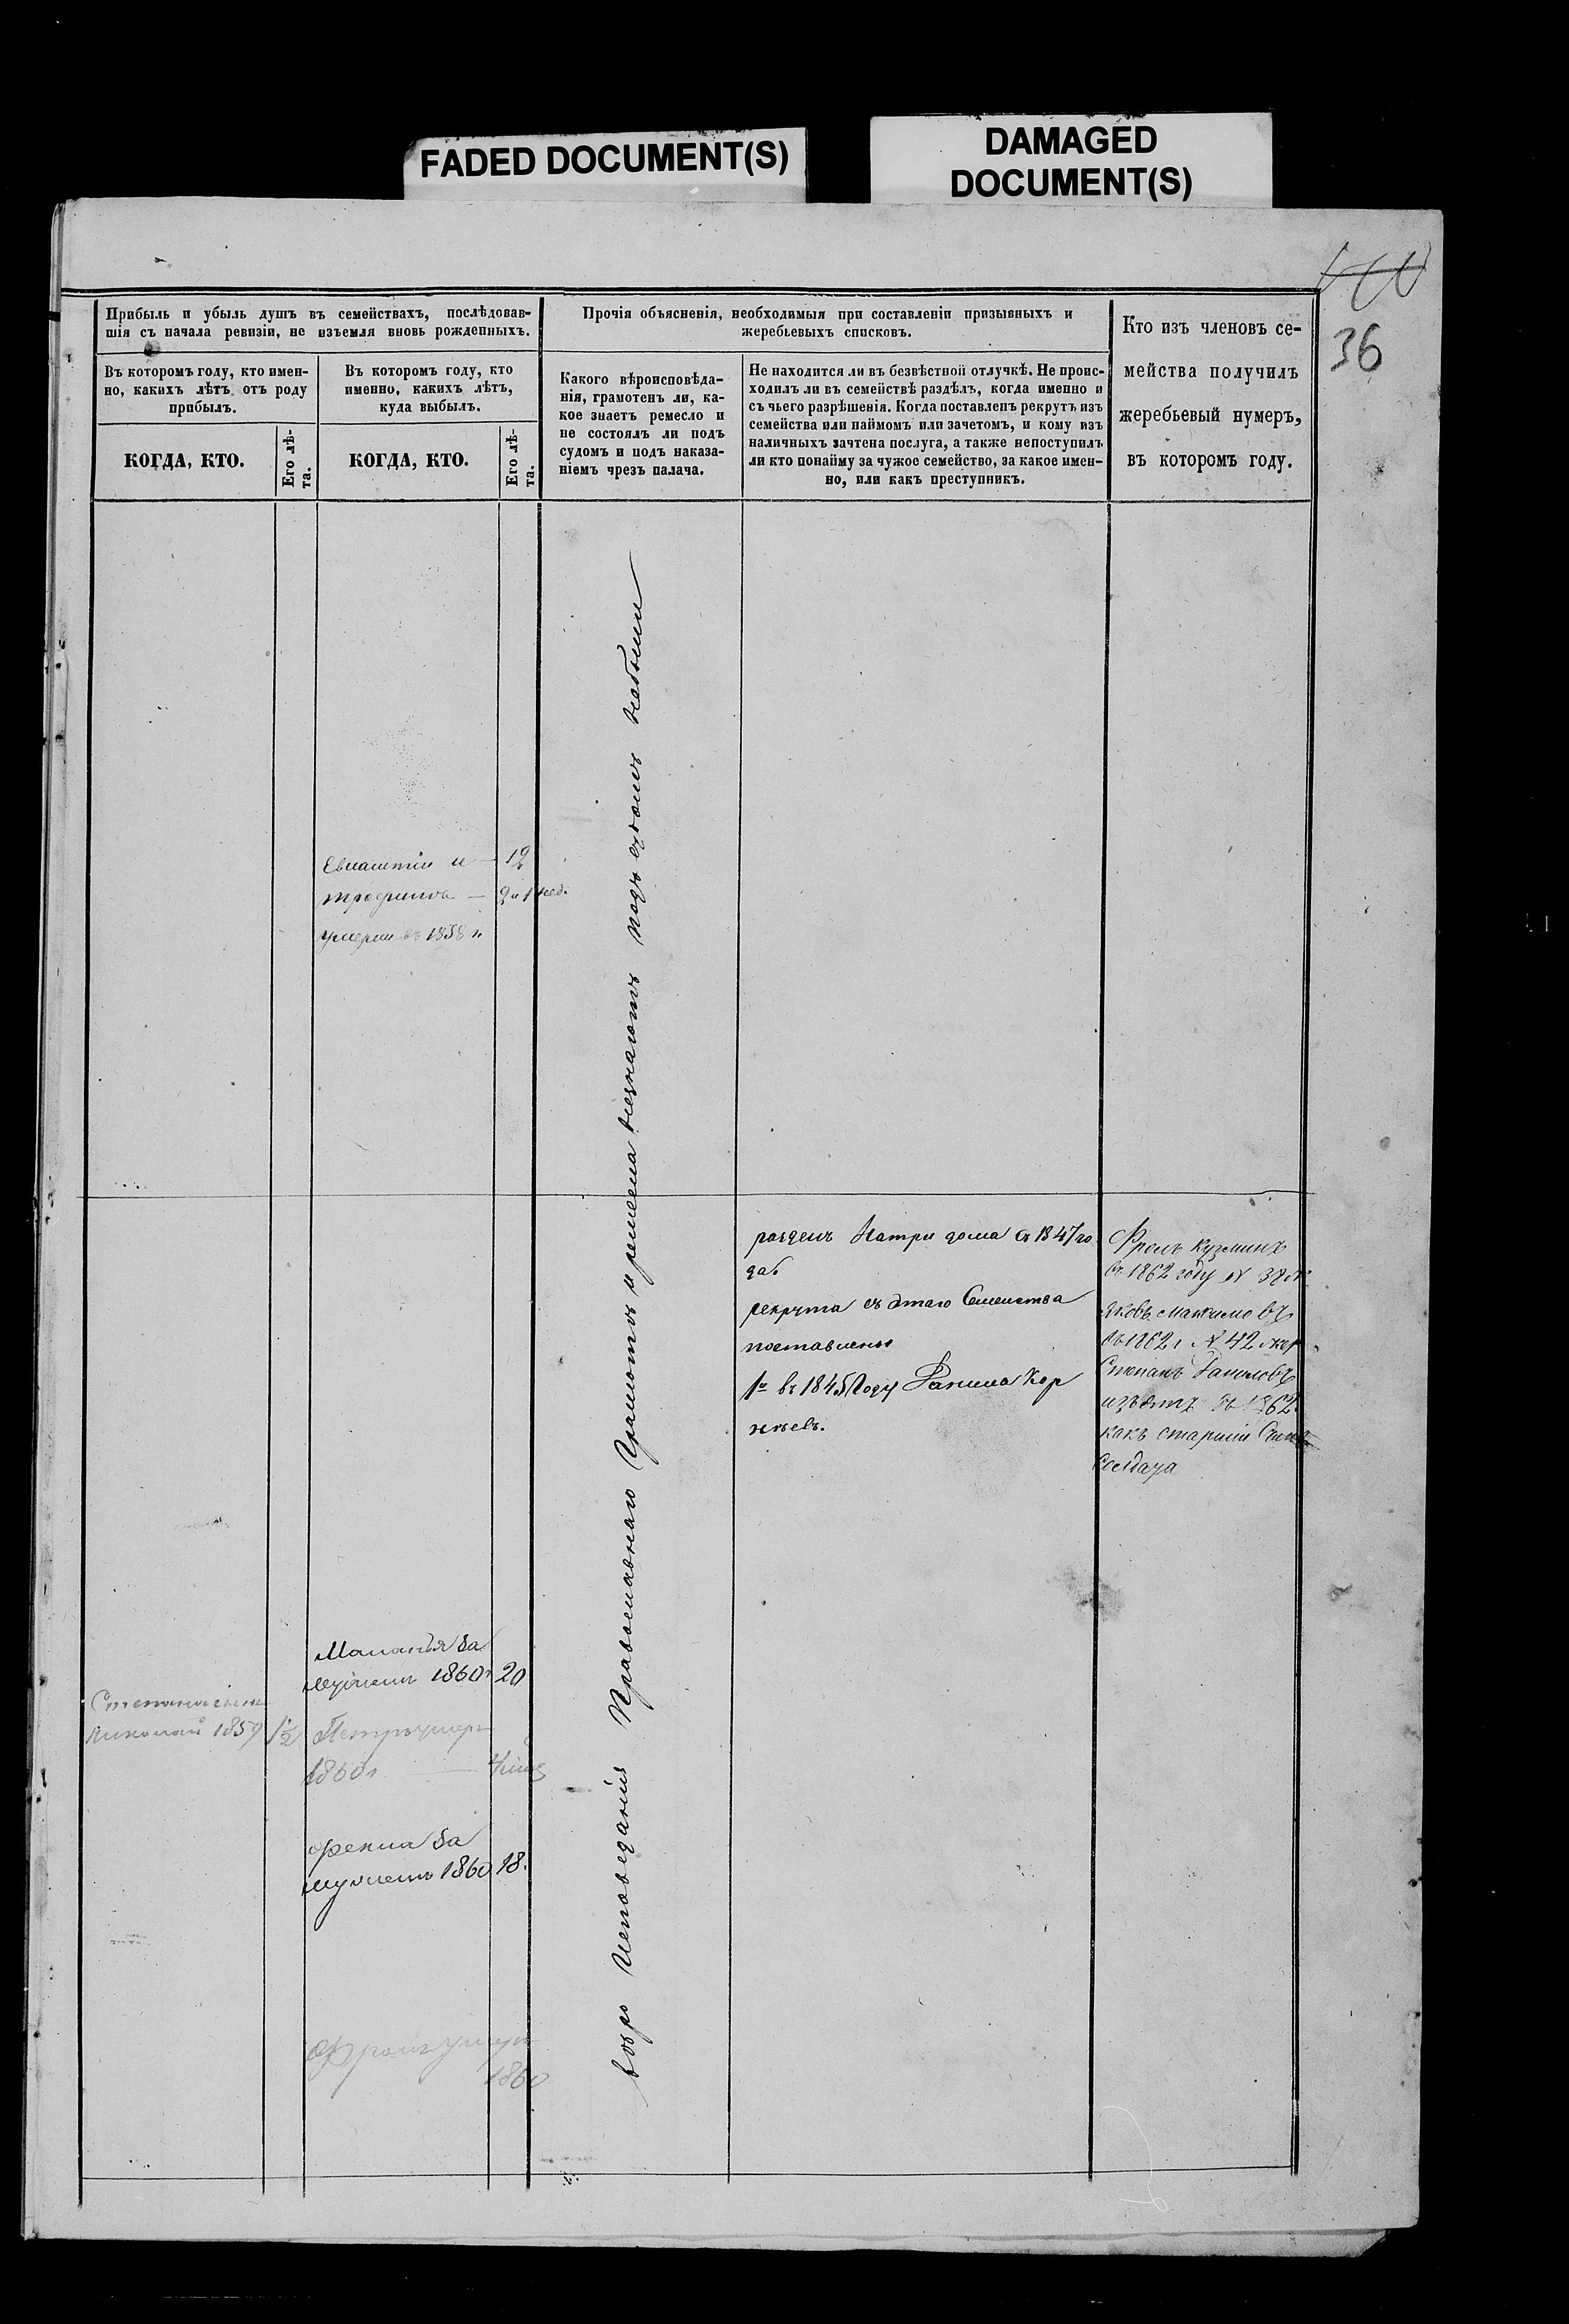 FADED DOCUMENT(S)
DAMAGED
DOCUMENT(S)
36
Прибыль и убыль душъ въ семействахъ, послѣдовав-
шія съ начала ревизіи, не изъемля вновь рожденныхъ.
Въ которомъ году, кто имен-
но, какихъ лѣтъ отъ роду
прибылъ.
КОГДА, КТО.
Его лѣ-
та.
Въ которомъ году, кто
именно, какихъ лѣтъ,
куда выбылъ.
КОГДА, КТО.
Его лѣ-
та.
Прочія объясненія, необходимыя при составленіи призывныхъ и
жеребьевыхъ списковъ.
Какого вѣроисповѣда-
нія, грамотенъ ли, ка-
кое знаетъ ремесло и
не состоялъ ли подъ
судомъ и подъ наказа-
ніемъ чрезъ палача.
Не находится ли въ безвѣстной отлучкѣ. Не проис-
ходилъ ли въ семействѣ раздѣлъ, когда именно и
съ чьего разрѣшенія. Когда поставленъ рекрутъ изъ
семейства или наймомъ или зачетомъ, и кому изъ
наличныхъ зачтена послуга, а также непоступилъ
ли кто понайму за чужое семейство, за какое имен-
но, или какъ преступникъ.
Кто изъ членовъ се-
мейства получилъ
жеребьевый нумеръ,
въ которомъ году.
и 12
умерли въ 1858 г.
Маланья за
мужемъ 1860 г 20
Николай 1859 1½
Петръ умеръ
1860 г
Фекла за
мужемъ 1860 18.
Фролъ умеръ
1860
вѣро Исповеданія Православнаго Грамотъ и ремесла незнаютъ подъ судомъ небыли
разделъ Натри дома съ 1847 го
да.
рекрута съ этаго Семейства
поставлены
1й въ 1845 Году Данила Кор
неевъ.
Фролъ Кузминъ
въ 1862 году № 38
Яковъ Максимовъ
въ 1862 г № 42 жер
Степанъ Даниловъ
изъятъ въ 1862
какъ старшій Сынъ
Солдата